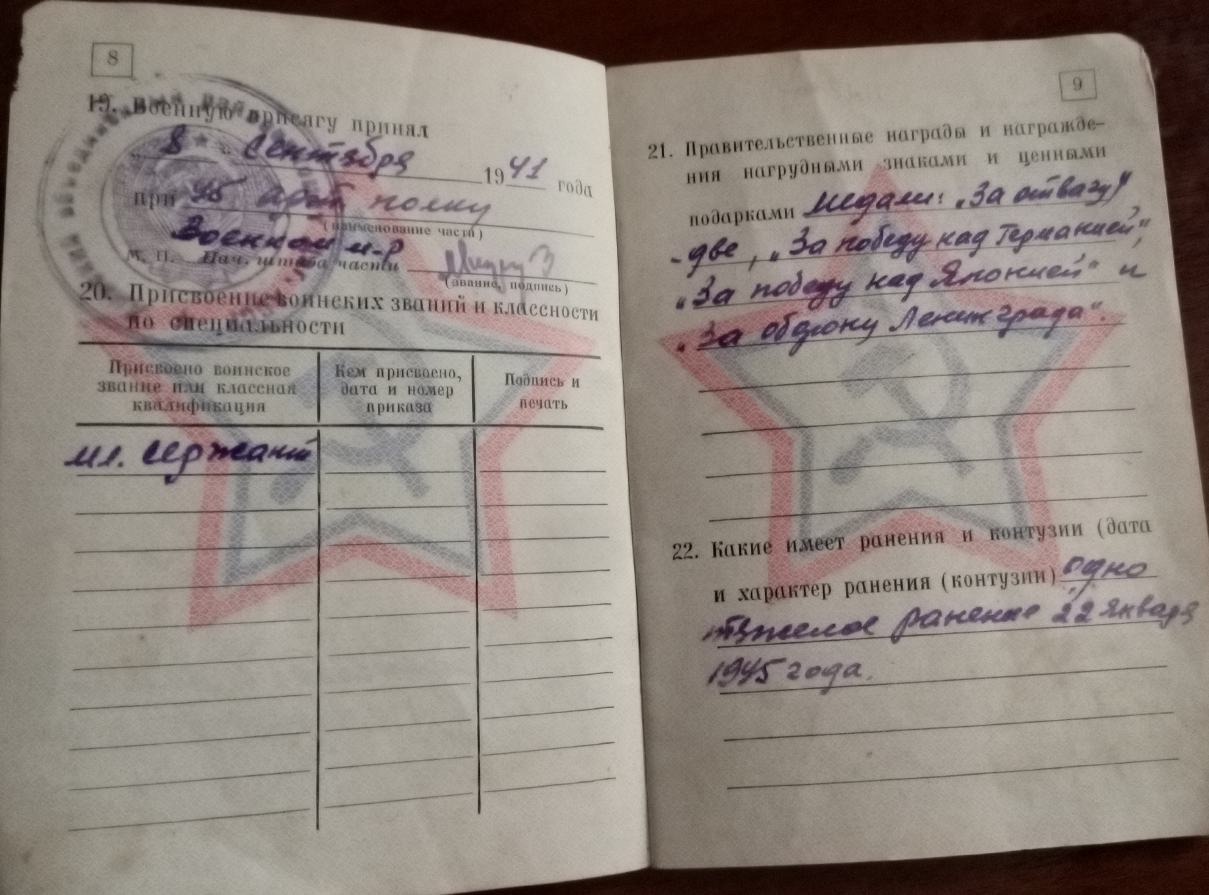 8
19. Военную присягу принял
8 сентября 1941 года
при 45 арт полку
(наименование части)
Военком м-р
М. П. Нач. штаба части
(звание, подпись)
20. Присвоение воинских званий и классности
по специальности
Присвоено воинское
звание или классная
квалификация
Кем присвоено,
дата и номер
приказа
Подпись и
печать
мл. сержант
9
21. Правительственные награды и награжде-
ния нагрудными знаками и ценными
подарками медали: „За отвагу"
- две, „За победу над Германией",
„За победу над Японией" и
„За оборону Ленинграда".
22. Какие имеет ранения и контузии (дата
и характер ранения (контузии) одно
тяжелое ранение 22 января
1945 года.